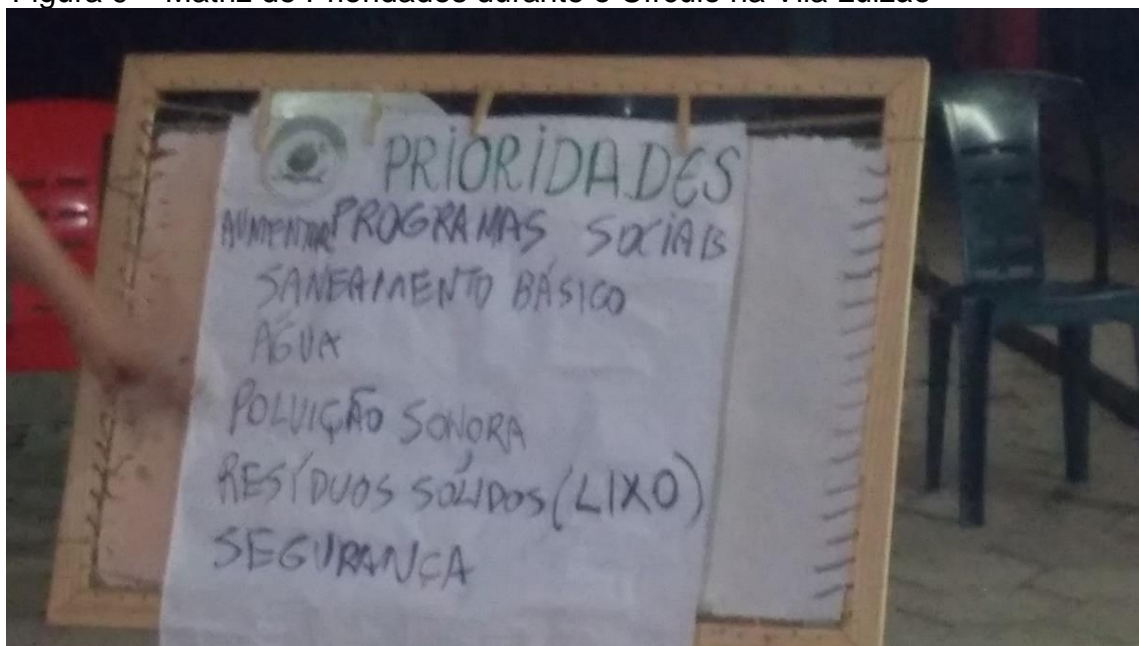 PRIORIDADES
AUMENTAR PROGRAMAS SOCIAIS
SANEAMENTO BÁSICO
ÁGUA
POLUIÇÃO SONORA
RESÍDUOS SÓLIDOS (LIXO)
SEGURANÇA